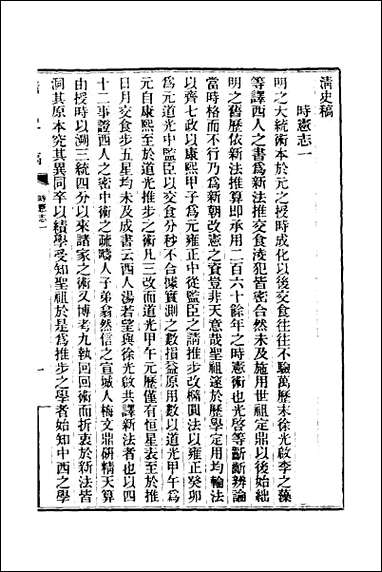 清史稿
時憲志一
明之大統術本於元之授時成化以後交食往往不驗萬歷末徐光啟李之藻
等譯西人之書為新法推交食淩犯皆密合然未及施用世祖定鼎以後始絀
明之舊歷依新法推算即承用二百六十餘年之時憲術也光啓等齗齗辨論
當時格而不行乃為新朝改憲之資豈非天意哉聖祖邃於歷學定用均輪法
以齊七政以康熙甲子為元雍正中從監臣之請推步改橢圓法以雍正癸卯
為元道光中監臣以交食分秒不合據實測之數損益原用數以道光甲午為
元自康熙至於道光推步之術凡三改而道光甲午元歷僅有恒星表至於推
日月交食步五星均未及成書云西人湯若望與徐光啟共譯新法者也以四
十二事證西人之密中術之疏疇人子弟翕然信之宣城人梅文鼎研精天算
由授時以溯三統四分以來諸家之術又博考九執回回術而折衷於新法皆
洞其原本究其異同卒以積學受知聖祖於是為推步之學者始知中西之學
時憲志一
一